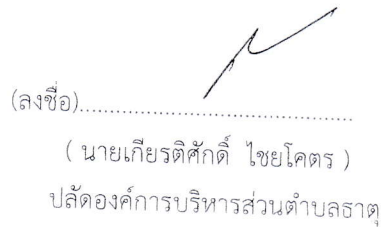 (ลงชื่อ)..............................................
( นายเกียรติศักดิ์ ไชยโคตร )
ปลัดองค์การบริหารส่วนตำบลธาตุ